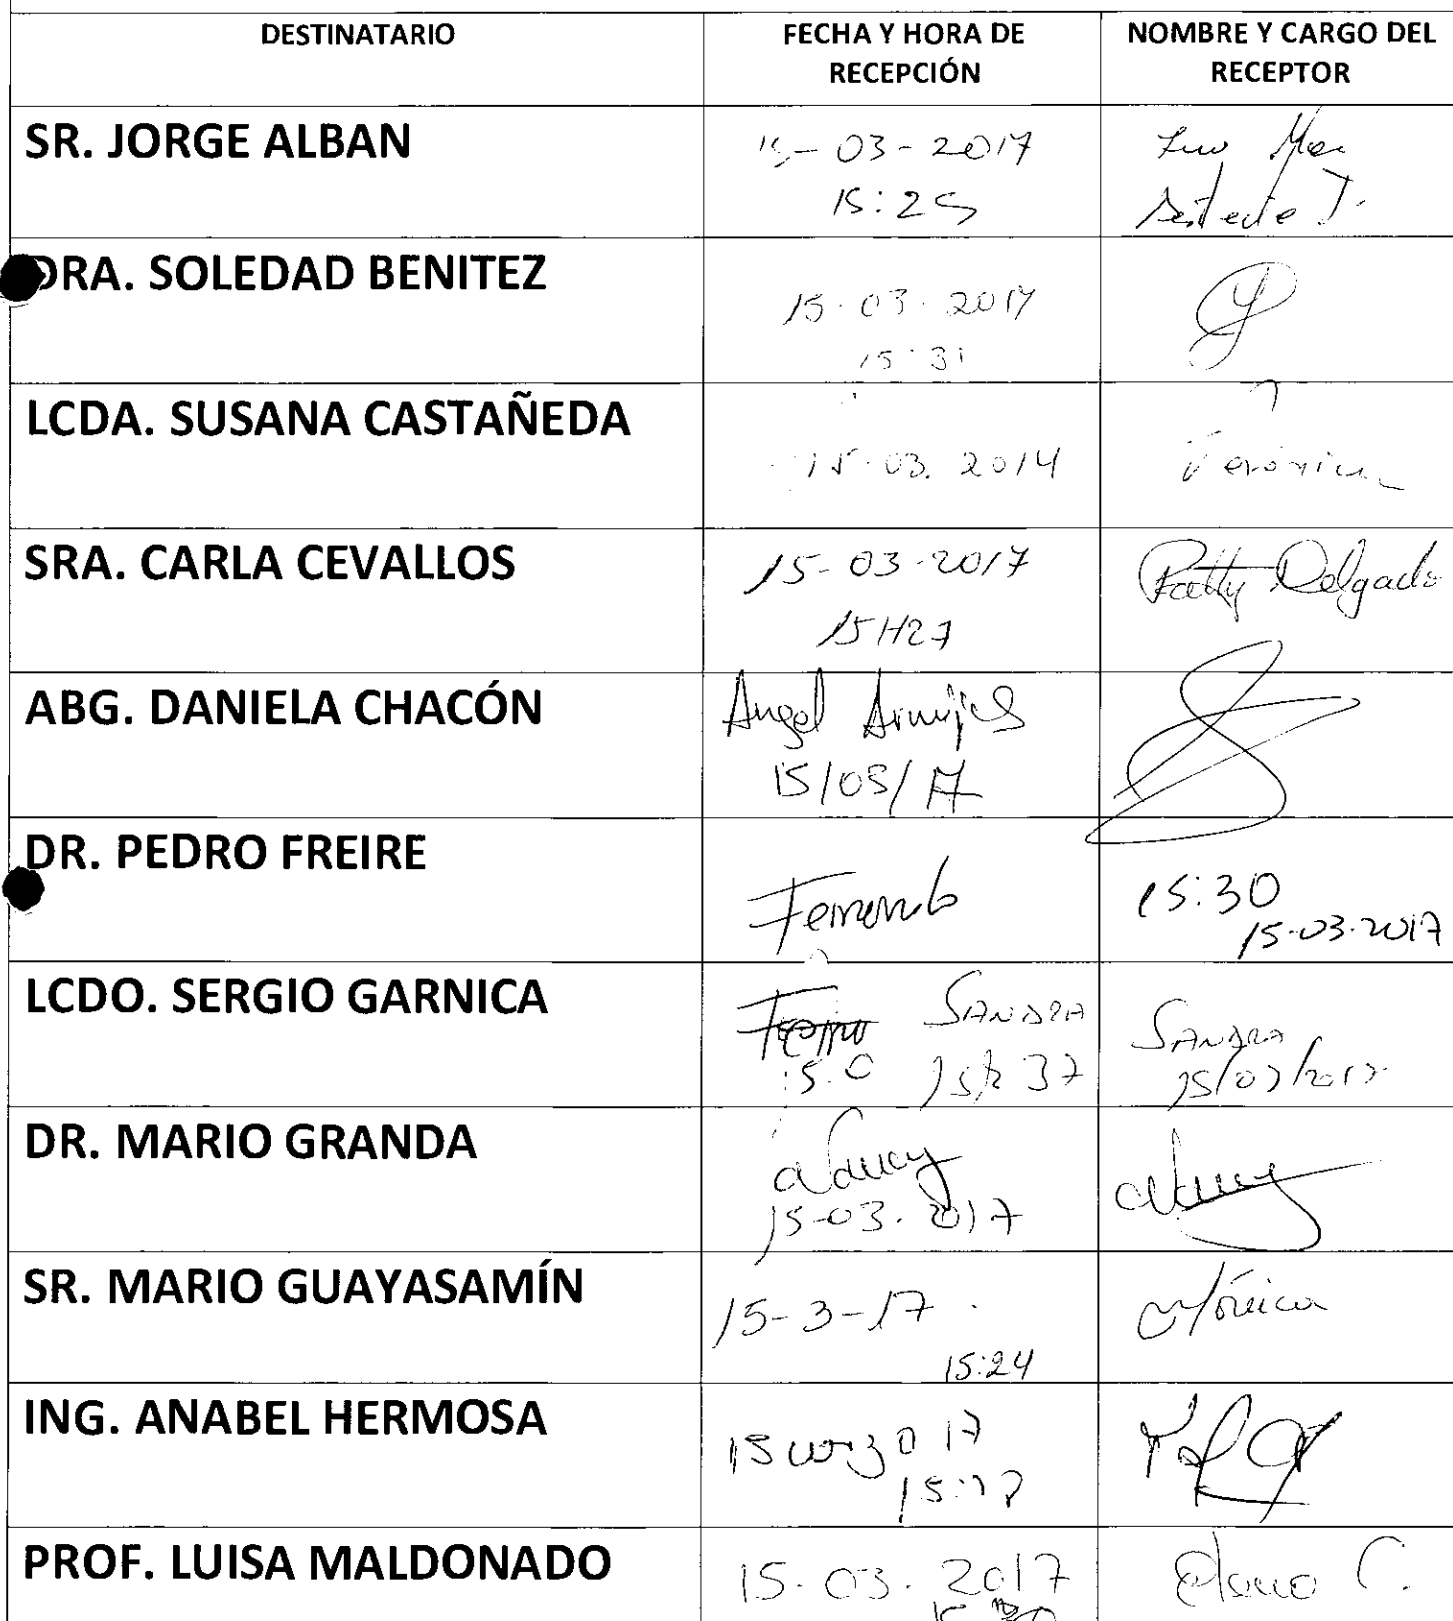 DESTINATARIO
FECHA Y HORA DE RECEPCIÓN
NOMBRE Y CARGO DEL RECEPTOR
SR. JORGE ALBAN
15-03-2017
15:25
DRA. SOLEDAD BENITEZ
15.03.2017
15:31
LCDA. SUSANA CASTAÑEDA
15.03.2014
Verónica
SRA. CARLA CEVALLOS
15-03-2017
15H27
Patty Delgado
ABG. DANIELA CHACÓN
Angel Armijos
15/03/17
DR. PEDRO FREIRE
Fernando
15:30
15.03.2017
LCDO. SERGIO GARNICA
SANDRA
15h37
SANDRA
15/03/2017
DR. MARIO GRANDA
Nancy
15-03.2017
Nancy
SR. MARIO GUAYASAMÍN
15-3-17
15:24
Mónica
ING. ANABEL HERMOSA
15 marzo 17
PROF. LUISA MALDONADO
15.03.2017